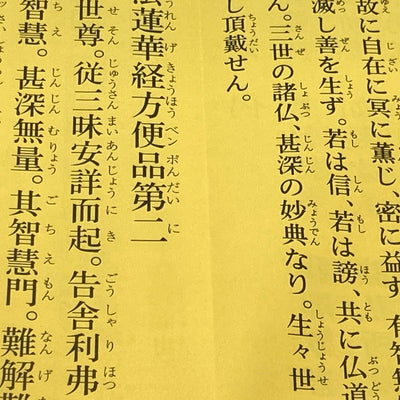 故に自在に冥に薫じ、密に益す。有智無
滅し善を生ず。若は信、若は謗、共に仏道
ん。三世の諸仏、甚深の妙典なり。生々世
し頂戴せん。
蓮華経方便品第二
世尊。従三昧安詳而起。告舎利弗
智慧。甚深無量。其智慧門。難解